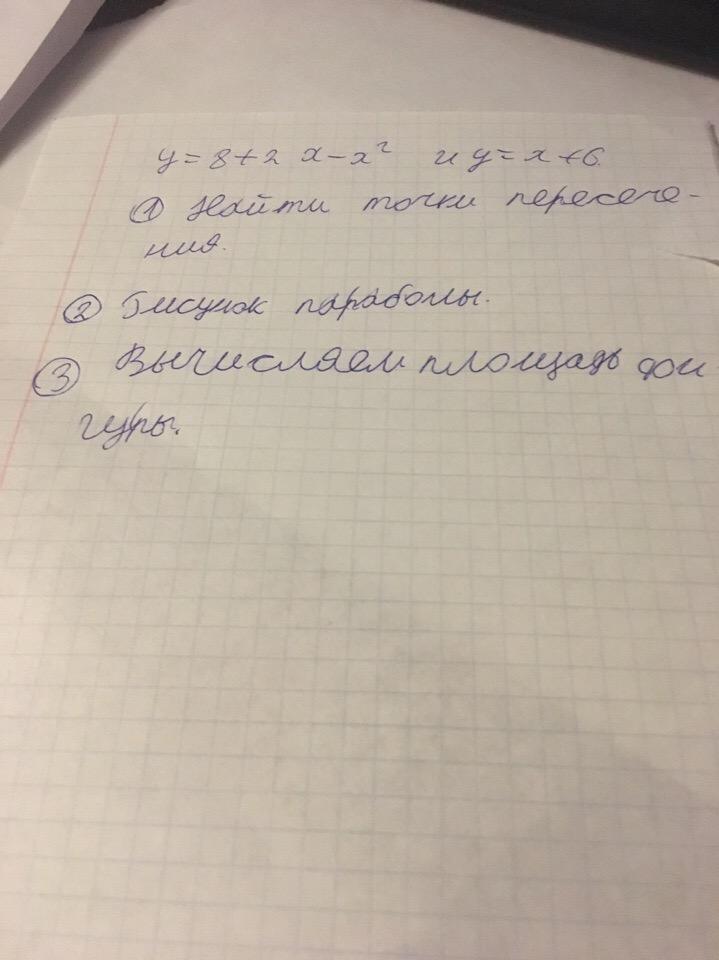 y = 8 + 2 x - x² и y = x + 6.
① Найти точки пересече-
ния.
② Рисунок параболы.
③ Вычисляем площадь фи
гуры.